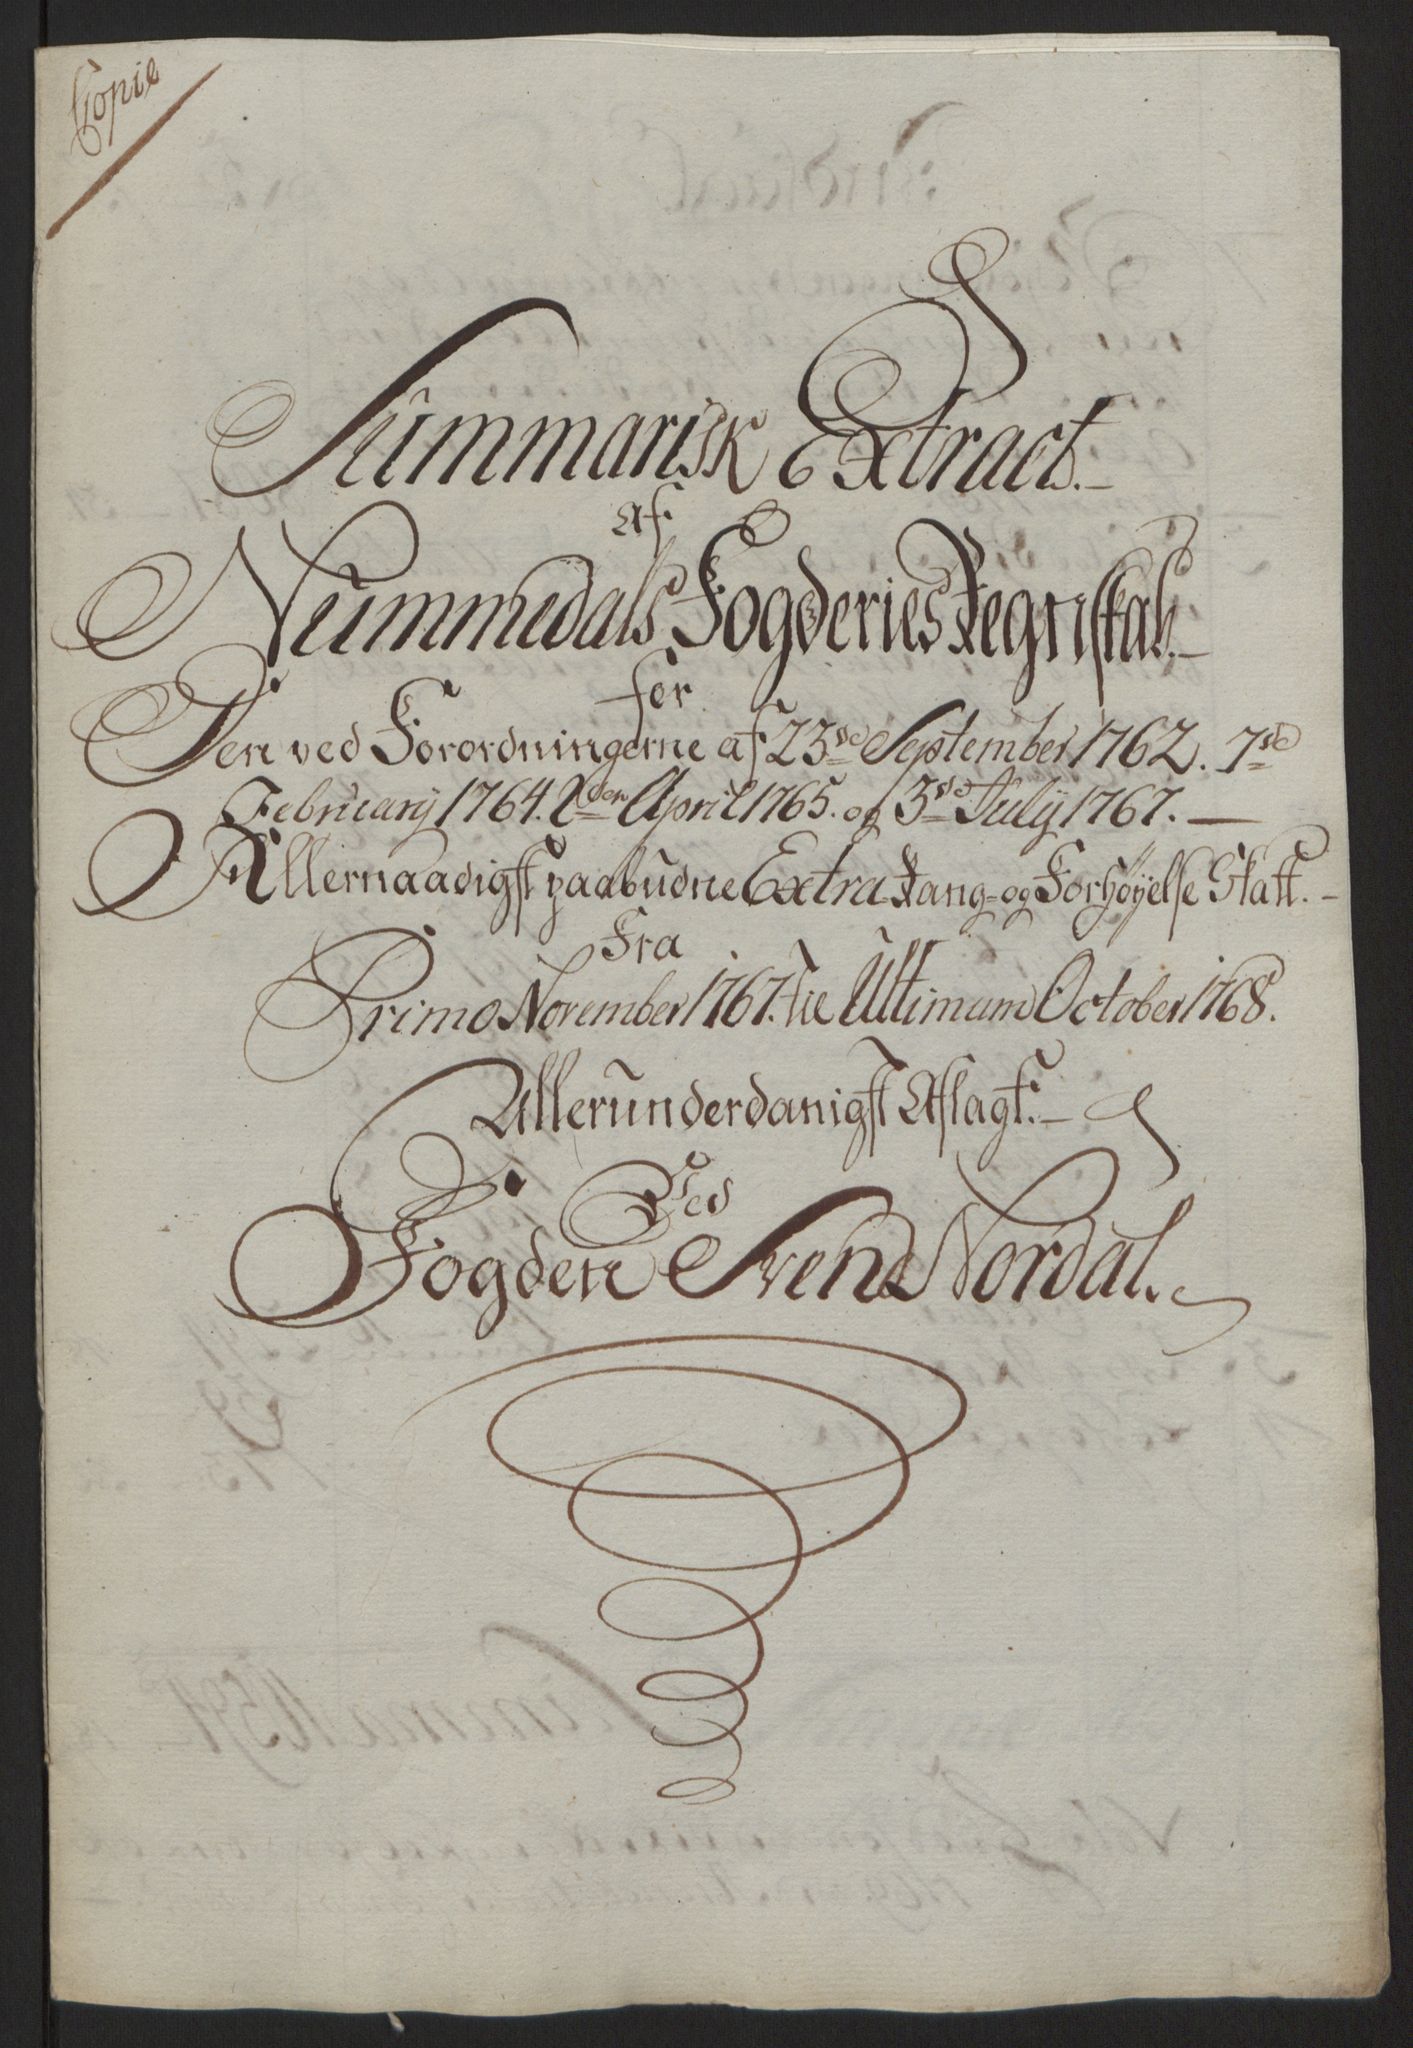 Copie
Summarisk Extract.
Af
Nummedals Fogderies Regnskab.
for
Den ved Forordningerne af 23de September 1762. 7de
February 1764. 2den April 1765. og 3de July 1767.
Allernaadigst paabudne Extra Rang- og Forhøyelse Skatt.
Fra
Primo November 1767. til Ultimum October 1768.
Allerunderdanigst Aflagt.
Ved
Fogden Svend Nordal.